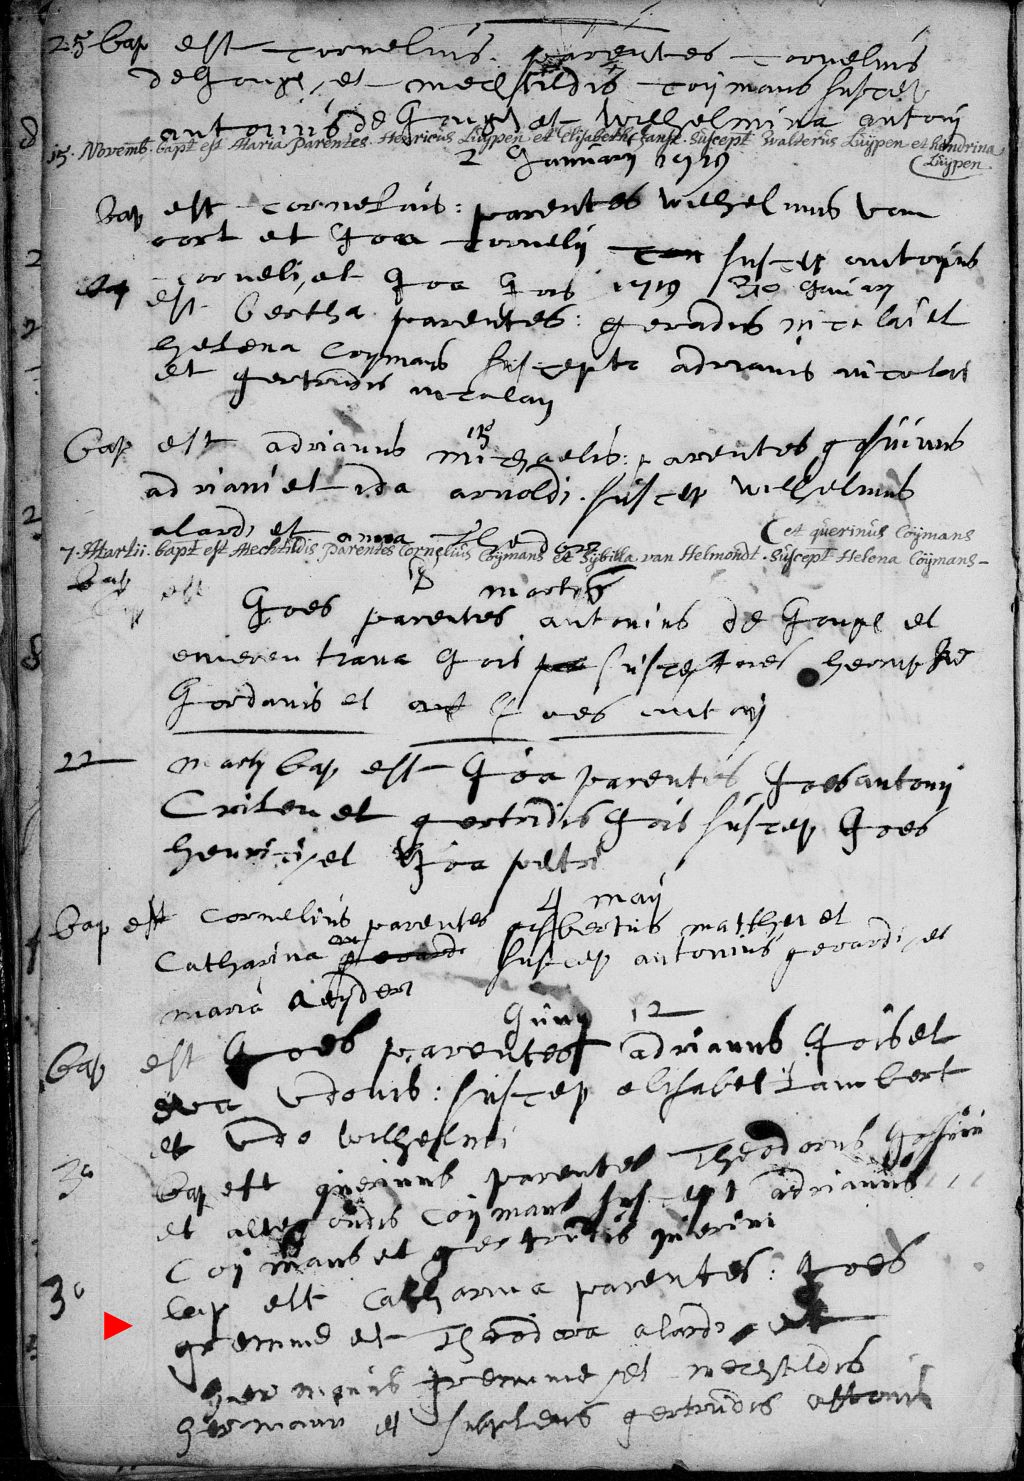 25 bap est Cornelius parentes Cornelius
de Goupe, et mechtildis Coijmans suscep
antonius de Goupe et Wilhelmina antonij
15. Novemb. bapt est Maria Parentes Henricus Luijpen et Elisabeth Suscept Walterus Luijpen et hendrina
Luijpen
2 Januarij 1719
bap est Cornelius: parentes Wilhelmus van
oort et Joa Cornelij suscep antonius
Cornelij, et Joa Jois 1719 30 Januarij
bap est bertha parentes: geradus nicolai et
helena Coijmans suscepto adrianus nicolai
et gertrudis nicolaij
15
bap est adrianus michaelis: parentes gosuinus
adriani et ida arnoldi. suscep Wilhelmus
alardi et anna Theodori
et querinus Coijmans
7. Martii. bapt est Mechtildis Parentes Cornelius Coijmans et Sybilla van Helmondt. Suscept Helena Coijmans
bap est 8 martis
Joes parentes antonius de Goupe et
Jois susceptores
Jordanis et Joes antonij
22 martij bap est Joa parentes Joes antonij
et gertridis Jois suscep Joes
henrici, et Joa petri
4 maij
bap est Cornelius parentes gisbertus matthei et
Catharina suscep antonius gerardi, et
maria
Junij 12
bap est Joes parentes adrianus Jois et
eva udonis: suscep elisabet Lambert
et udo Wilhelmi
30 bap est querinus parentes Theodorus Gosuini
et aldegondis Coijmans suscept adrianus
Coijmans et gertrudis querini
30 bap est Catharina parentes: Joes
et Theodora alardi, et
hermanus et mechtildis
hermanni et supplens gertrudis antonii